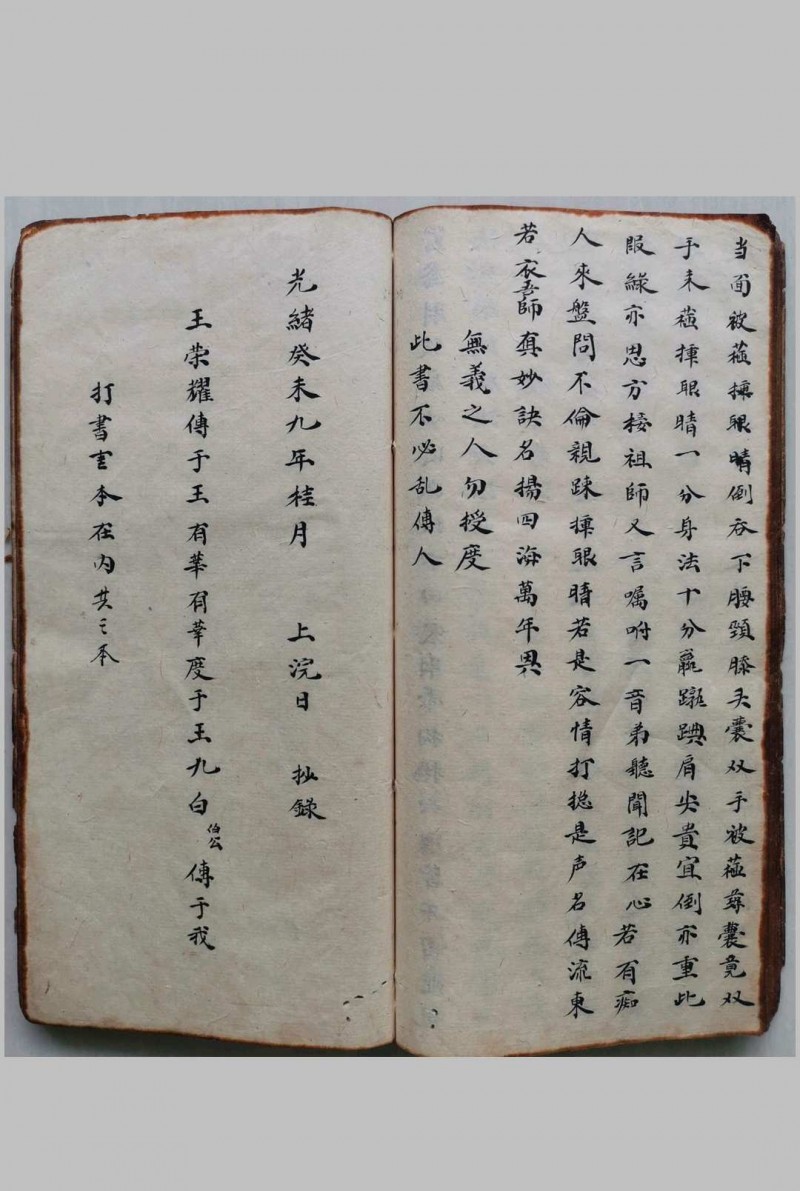 当面被蓝揰眼睛倒吞下腰頸膝头囊双手被蓝蒜囊竟双
手未蓝揰眼睛一分身法十分龎蹤踴肩尖貴宜倒亦重此
服綠亦思方接祖師又言嘱咐一音弟聽聞記在心若有痴
人來盤問不倫親踈揰眼睛若是容情打搃是声名傳流東
若衣吾師真妙訣名揚四海萬年畏
無義之人勿授度
此書不必乱傳人
光緒癸未九年桂月 上浣日 抄錄
王荣耀傳于王有華有華度于王九白伯公傳于我
打書壹本在内共三本